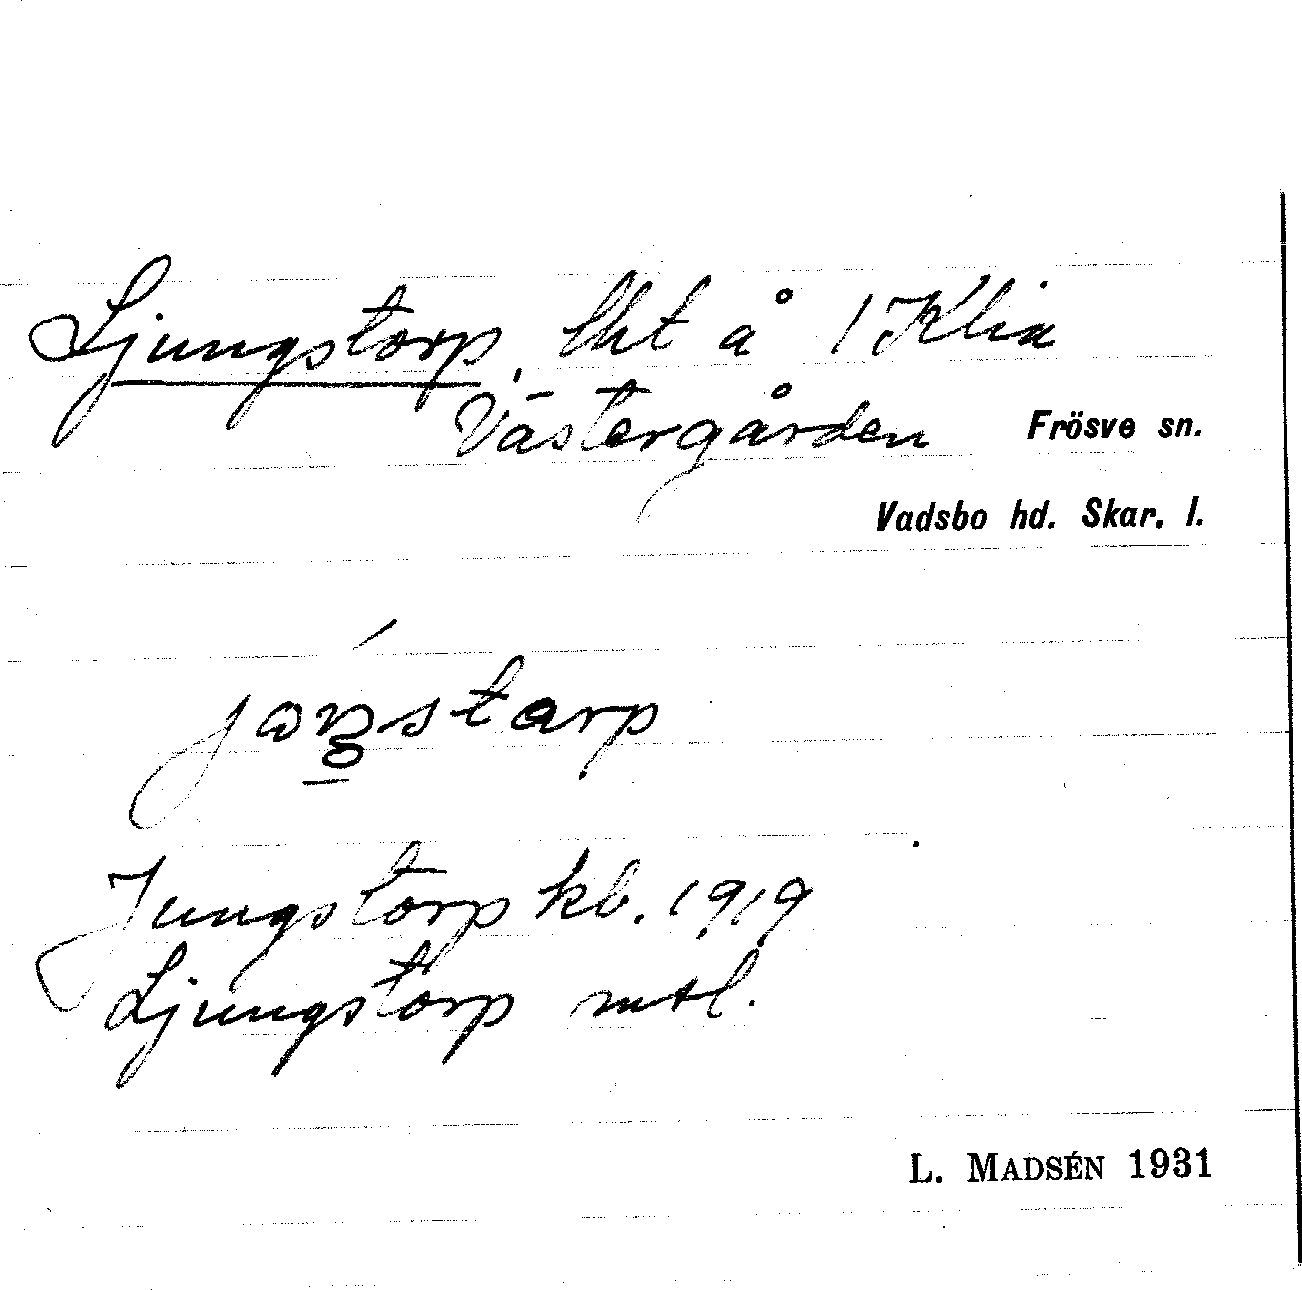 Ljungstorp, lht å 1 Klia
Västergården Frösve sn.
Vadsbo hd. Skar. l.
Jungstorp kb. 1919
Ljungstorp mtl.
L. MADSÉN 1931